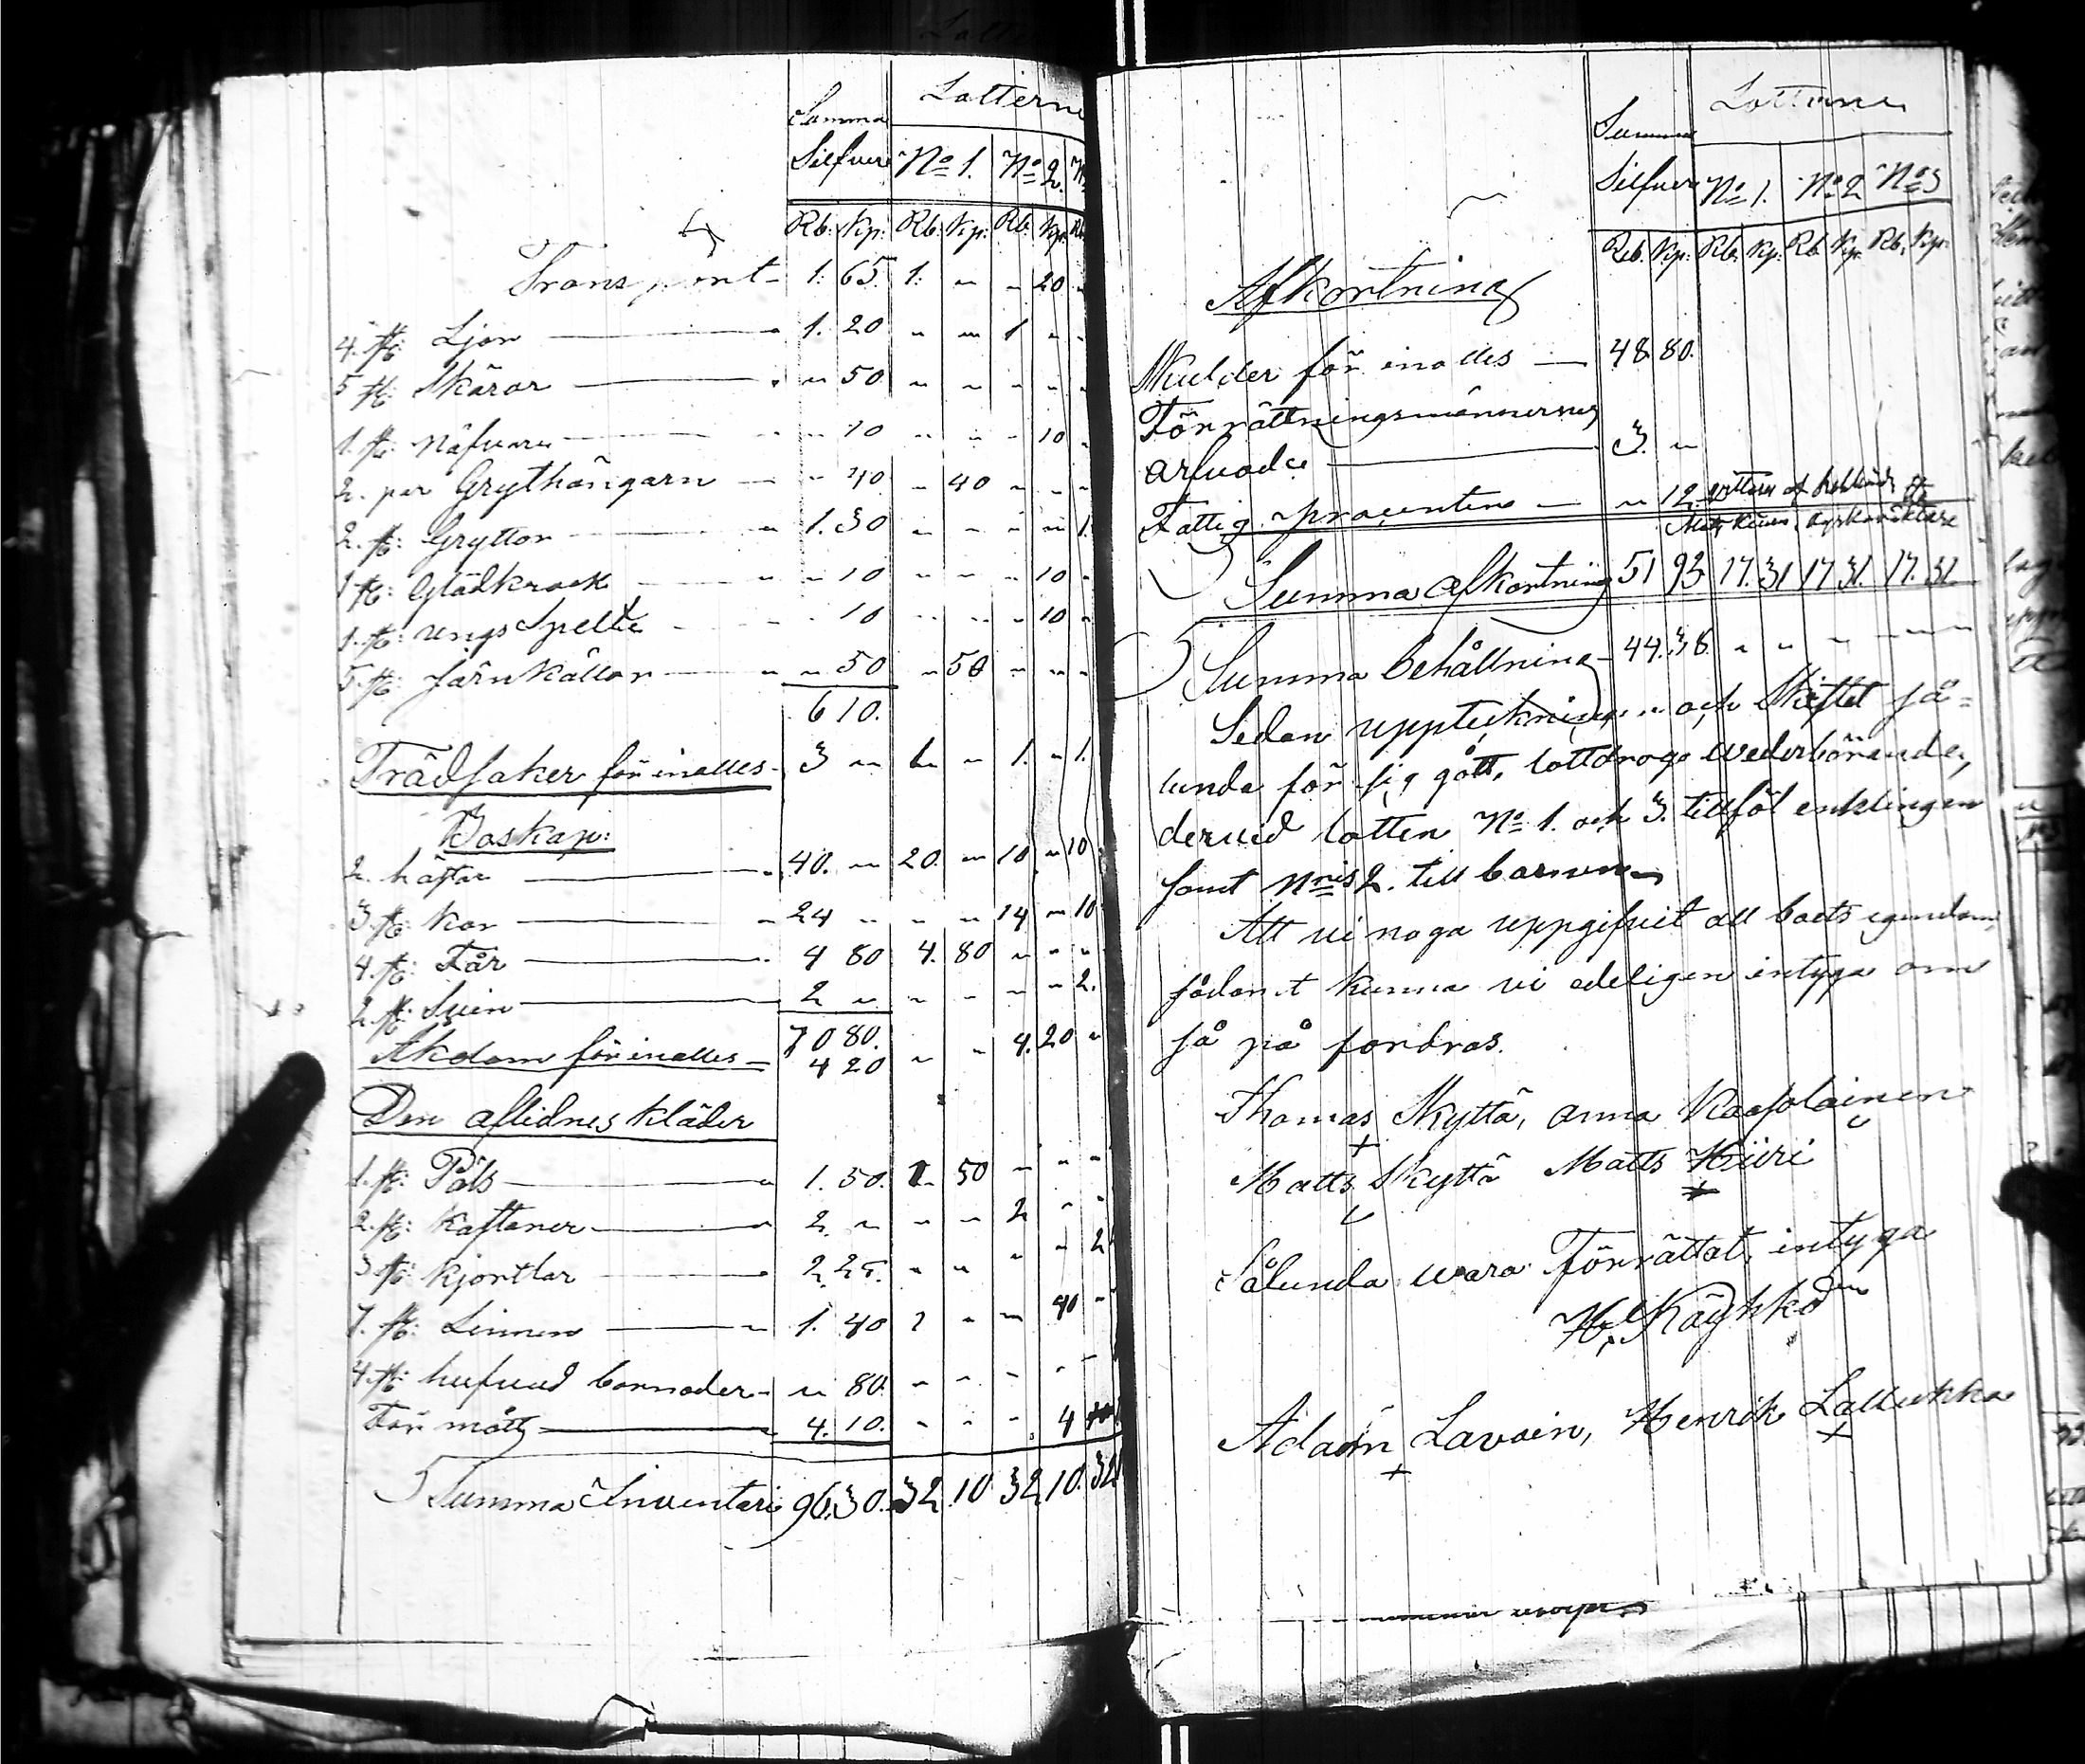 Lotterne
Summa
Silfver No 1. No 2.
Rb: Kp: Rb: Kp: Rb: Kp:
Transport 1. 65. 1. " " 20
4. st: Ljor 1. 20 " " 1 "
5 st: Skäror " 50 " " " "
1. st: Näfvare " 10 " " " 10
2. par Grythängarn " 40 " 40 " "
2. st: Gryttor 1. 30 " " " " 1.
1 st: Glödkrock " 10 " " " 10
1. st: ungs Speltt " 10 " " " 10
5. st: järnkällor " 50 " 50 " "
6 10.
Trädsaker för inalles 3 " 1. " 1. " 1.
Boskap:
2. hästar 40. " 20. " 10 " 10
3. st: Kor 24 " " " 14 " 10
4. st: Får 4 80 4. 80 " "
2. st: Svin 2 " " " " " 2.
70 80.
Åkdom för inalles 4 20 " " 4. 20 "
Den aflidnes kläder
1. st: Päls 1. 50. 1. 50 " "
2. st: Kaftaner 2. " " " 2 "
3 st: Kjortlar 2. 25. " " " " 2
7. st: Linnen 1. 40 1 " " 40
4. st: hufvud bonnader " 80. " " " "
För mått 4. 10. " " " 4
Summa Inventari 96. 30. 32 10 32 10. 32
Lotterne
Summa
Silfver No 1. No 2 No 3
Rb. Kp: Rb. Kp: Rb. Kp. Rb. Kp.
Afkortning
Skulder för inalles 48 80.
Förrättningsmännernes
arfvode 3. "
Fattig procenten " 12.
Summa afkortning 51 93 17. 31 17 31. 17. 31
Summa behållning 44. 38. " " "
Sedan uppteckningen och Skiftet så=
lunda för sig gått, lottdrogo wederbörande,
dervid lotten No 1. och 3. tillföl enklingen
samt Nris 2. till barnen
Att vi noga uppgifvit all boets egendom,
sådant kunna vi edeligen intyga om
så på fordras.
Thomas Skyttä, Anna Kaapolainen
Matts Skyttä Matts Kiiri
Sålunda vara Förrättat, intyga
H. Käyhkö
Adam Lavain, Henrik Lallukka